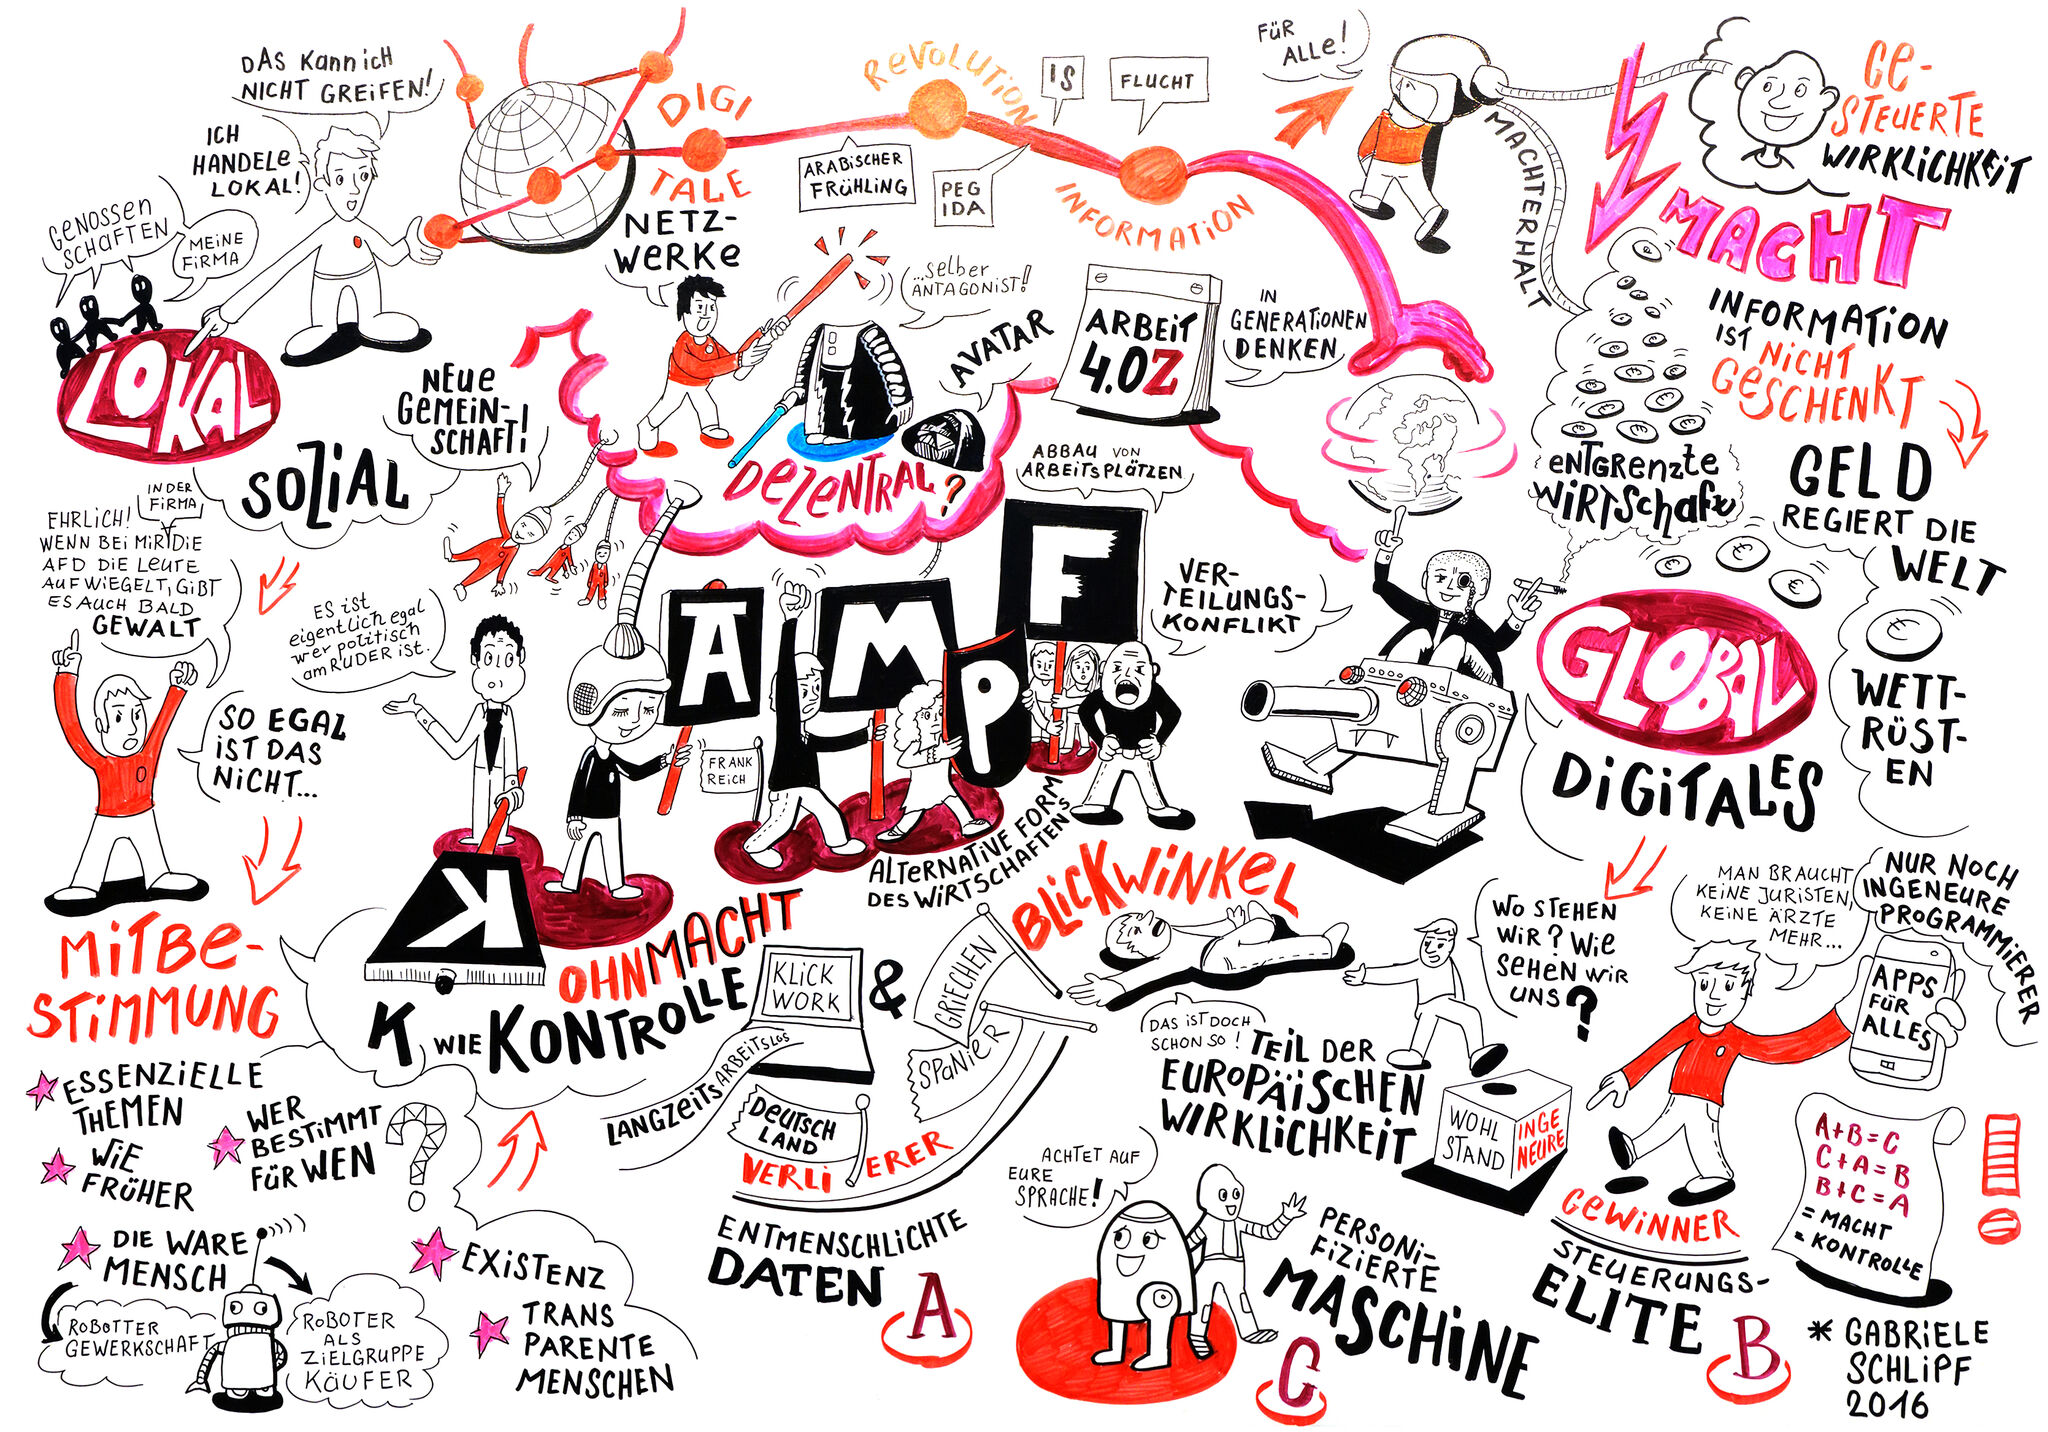 DAS KANN ICH
NICHT GREIFEN!
ICH
HANDELE
LOKAL!
GENOSSEN
SCHAFTEN
MEINE
FIRMA
LOKAL
SOZIAL
DIGI
TALE
NETZ-
WERKE
REVOLUTION
ARABISCHER
FRÜHLING
PEG
IDA
IS
FLUCHT
INFORMATION
...SELBER
ANTAGONIST!
AVATAR
DEZENTRAL?
NEUE
GEMEIN-
SCHAFT!
ARBEIT
4.0Z
IN
GENERATIONEN
DENKEN
FÜR
ALLE!
MACHTERHALT
GE-
STEUERTE
WIRKLICHKEIT
MACHT
INFORMATION
IST
NICHT
GESCHENKT
GELD
REGIERT DIE
WELT
WETT-
RÜST-
EN
ENTGRENZTE
WIRTSCHAFT
GLOBAL
DIGITALES
ABBAU VON
ARBEITSPLÄTZEN
VER-
TEILUNGS-
KONFLIKT
IN DER
FIRMA
EHRLICH!
WENN BEI MIR DIE
AFD DIE LEUTE
AUFWIEGELT, GIBT
ES AUCH BALD
GEWALT
SO EGAL
IST DAS
NICHT...
ES IST
EIGENTLICH EGAL
WER POLITISCH
AM RUDER IST.
K
A
M
P
F
FRANK
REICH
ALTERNATIVE FORM
DES WIRTSCHAFTENS
OHNMACHT
K WIE KONTROLLE
MITBE-
STIMMUNG
ESSENZIELLE
THEMEN
WIE
FRÜHER
WER
BESTIMMT
FÜR WEN
?
DIE WARE
MENSCH
ROBOTTER
GEWERKSCHAFT
ROBOTER
ALS
ZIELGRUPPE
KÄUFER
EXISTENZ
TRANS
PARENTE
MENSCHEN
KLICK
WORK
&
LANGZEITSARBEITSLOS
GRIECHEN
SPANIER
DEUTSCH
LAND
VERLIERER
ENTMENSCHLICHTE
DATEN
A
BLICKWINKEL
DAS IST DOCH
SCHON SO!
TEIL DER
EUROPÄISCHEN
WIRKLICHKEIT
WO STEHEN
WIR? WIE
SEHEN WIR
UNS?
WOHL
STAND
INGE
NEURE
MAN BRAUCHT
KEINE JURISTEN,
KEINE ÄRZTE
MEHR...
NUR NOCH
INGENEURE
PROGRAMMIERER
APPS
FÜR
ALLES
GEWINNER
STEUERUNGS-
ELITE
B
A+B=C
C+A=B
B+C=A
= MACHT
= KONTROLLE
!
ACHTET AUF
EURE
SPRACHE!
PERSONI-
FIZIERTE
MASCHINE
C
* GABRIELE
SCHLIPF
2016